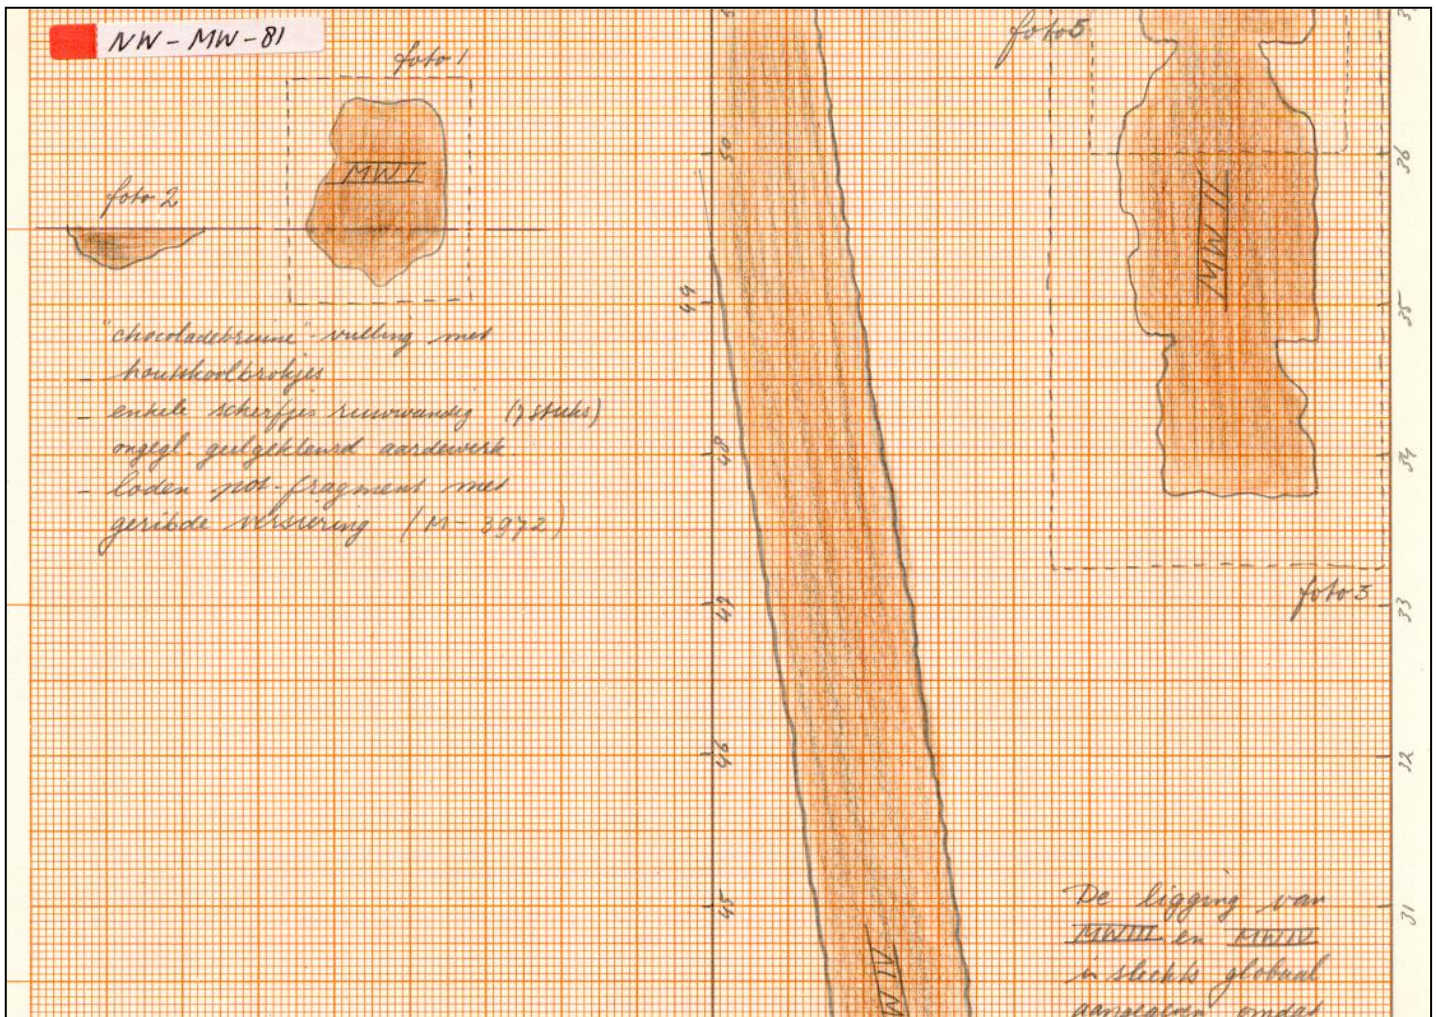 NW-MW-81
foto 1
MW I
foto 2
"chocoladebruine"-vulling met
- houtskoolbrokjes
- enkele scherfjes ruwwandig (7 stuks)
ongegl. geelgekleurd aardewerk.
- loden pot-fragment met
geribde versiering (M-3972)
50
49
48
47
46
45
foto 5
MW II
36
35
34
33
32
31
De ligging van
MW III en MW IV
is slechts globaal
aangegeven omdat